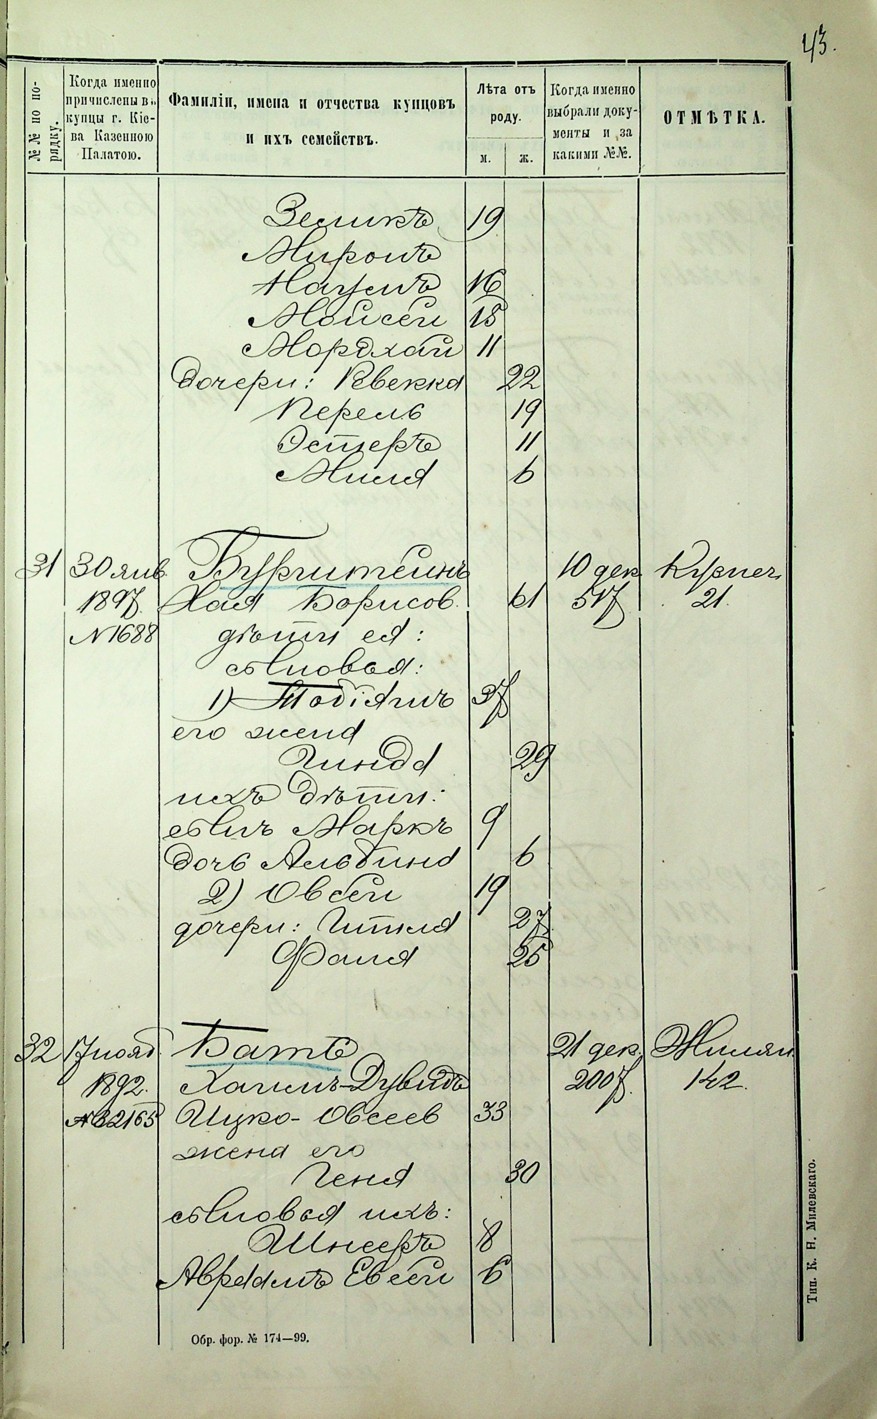 43.
№№ по по-
рядку.
Когда именно
причислены въ
купцы г. Кіе-
ва Казенною
Палатою.
Фамиліи, имена и отчества купцовъ
и ихъ семействъ.
Лѣта отъ
роду.
м.
ж.
Когда именно
выбрали доку-
менты и за
какими №№.
ОТМѢТКА.
Зеликъ 19
Миронъ
Наумъ 16
Мойсей 15
Мордхай 11
дочери: Ревекка 22
Перель 19
Эстеръ 11
Миля 6
31 30 янв. Бурштейнъ 10 дек. Кузнеч.
1897. Хая Борисов. 61 517 21.
№ 1688 дѣти ея:
сыновья:
1) Тобіяшъ 37
его жена
Гинда 29
ихъ дѣти:
сынъ Маркъ 9
дочь Альбина 6
2) Овсей 19
дочери: Гитля 27
Фаня 25
32 17 нояб. Батъ 21 дек. Жилян.
1892. Хаимъ-Дувидъ 2007. 142.
№ 32165 Ицко-Овсеев 33
жена его
Геня 30
сыновья ихъ:
Шнееръ 8
Авраамъ Евсей 6
Обр. фор. № 174—99.
Тип. К. Н. Милевскаго.